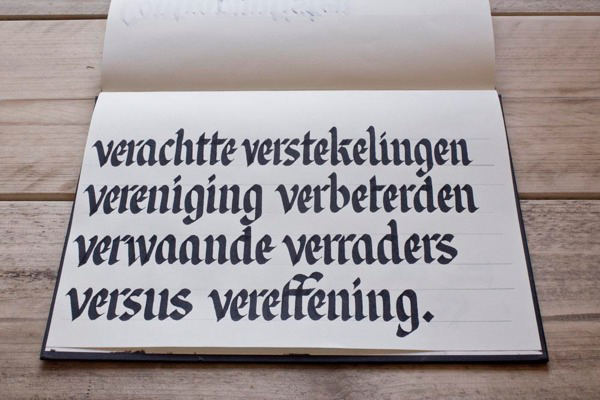 verachtte verstekelingen
vereniging verbeterden
verwaande verraders
versus vereffening.